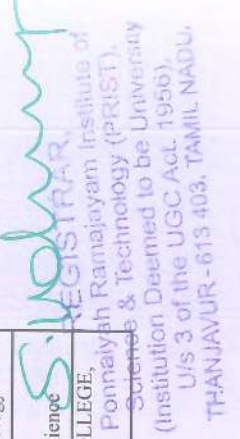 gy,
ience
LLEGE,
REGISTRAR,
Ponnaiyah Ramajayam Institute of
Science & Technology (PRIST),
(Institution Deemed to be University
U/s 3 of the UGC Act. 1956),
THANJAVUR - 613 403. TAMIL NADU.